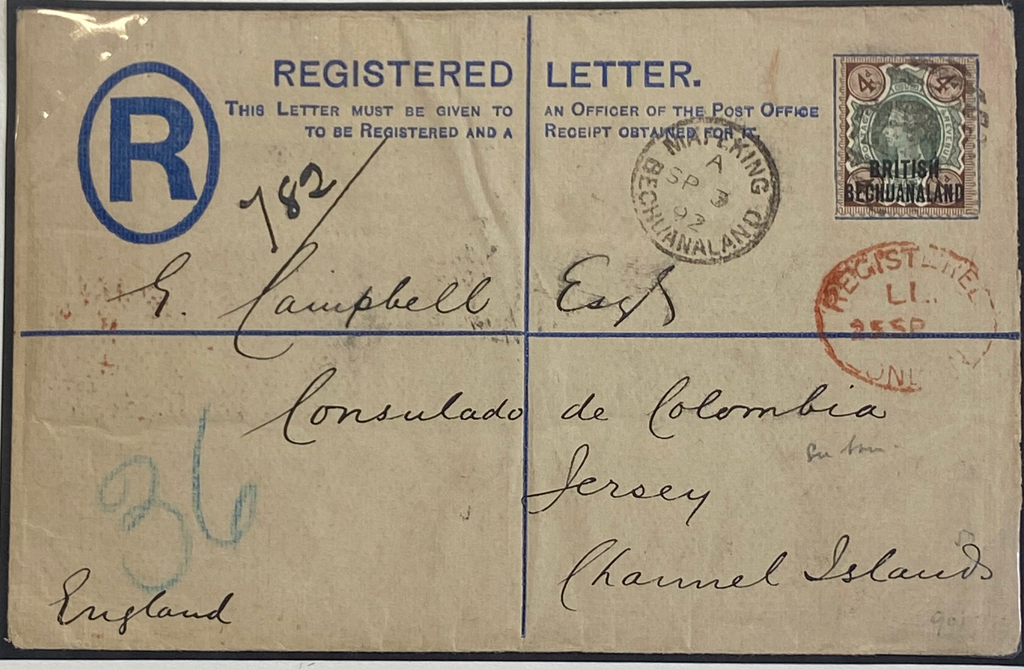 REGISTERED LETTER.
THIS LETTER MUST BE GIVEN TO AN OFFICER OF THE POST OFFICE
TO BE REGISTERED AND A RECEIPT OBTAINED FOR IT.
R
4d 4d
BRITISH
BECHUANALAND
MAFEKING
A
SP 3
92
BECHUANALAND
782
REGISTERED
25 SP
G. Campbell Esqr
Consulado de Colombia
Jersey
Channel Islands
36
England